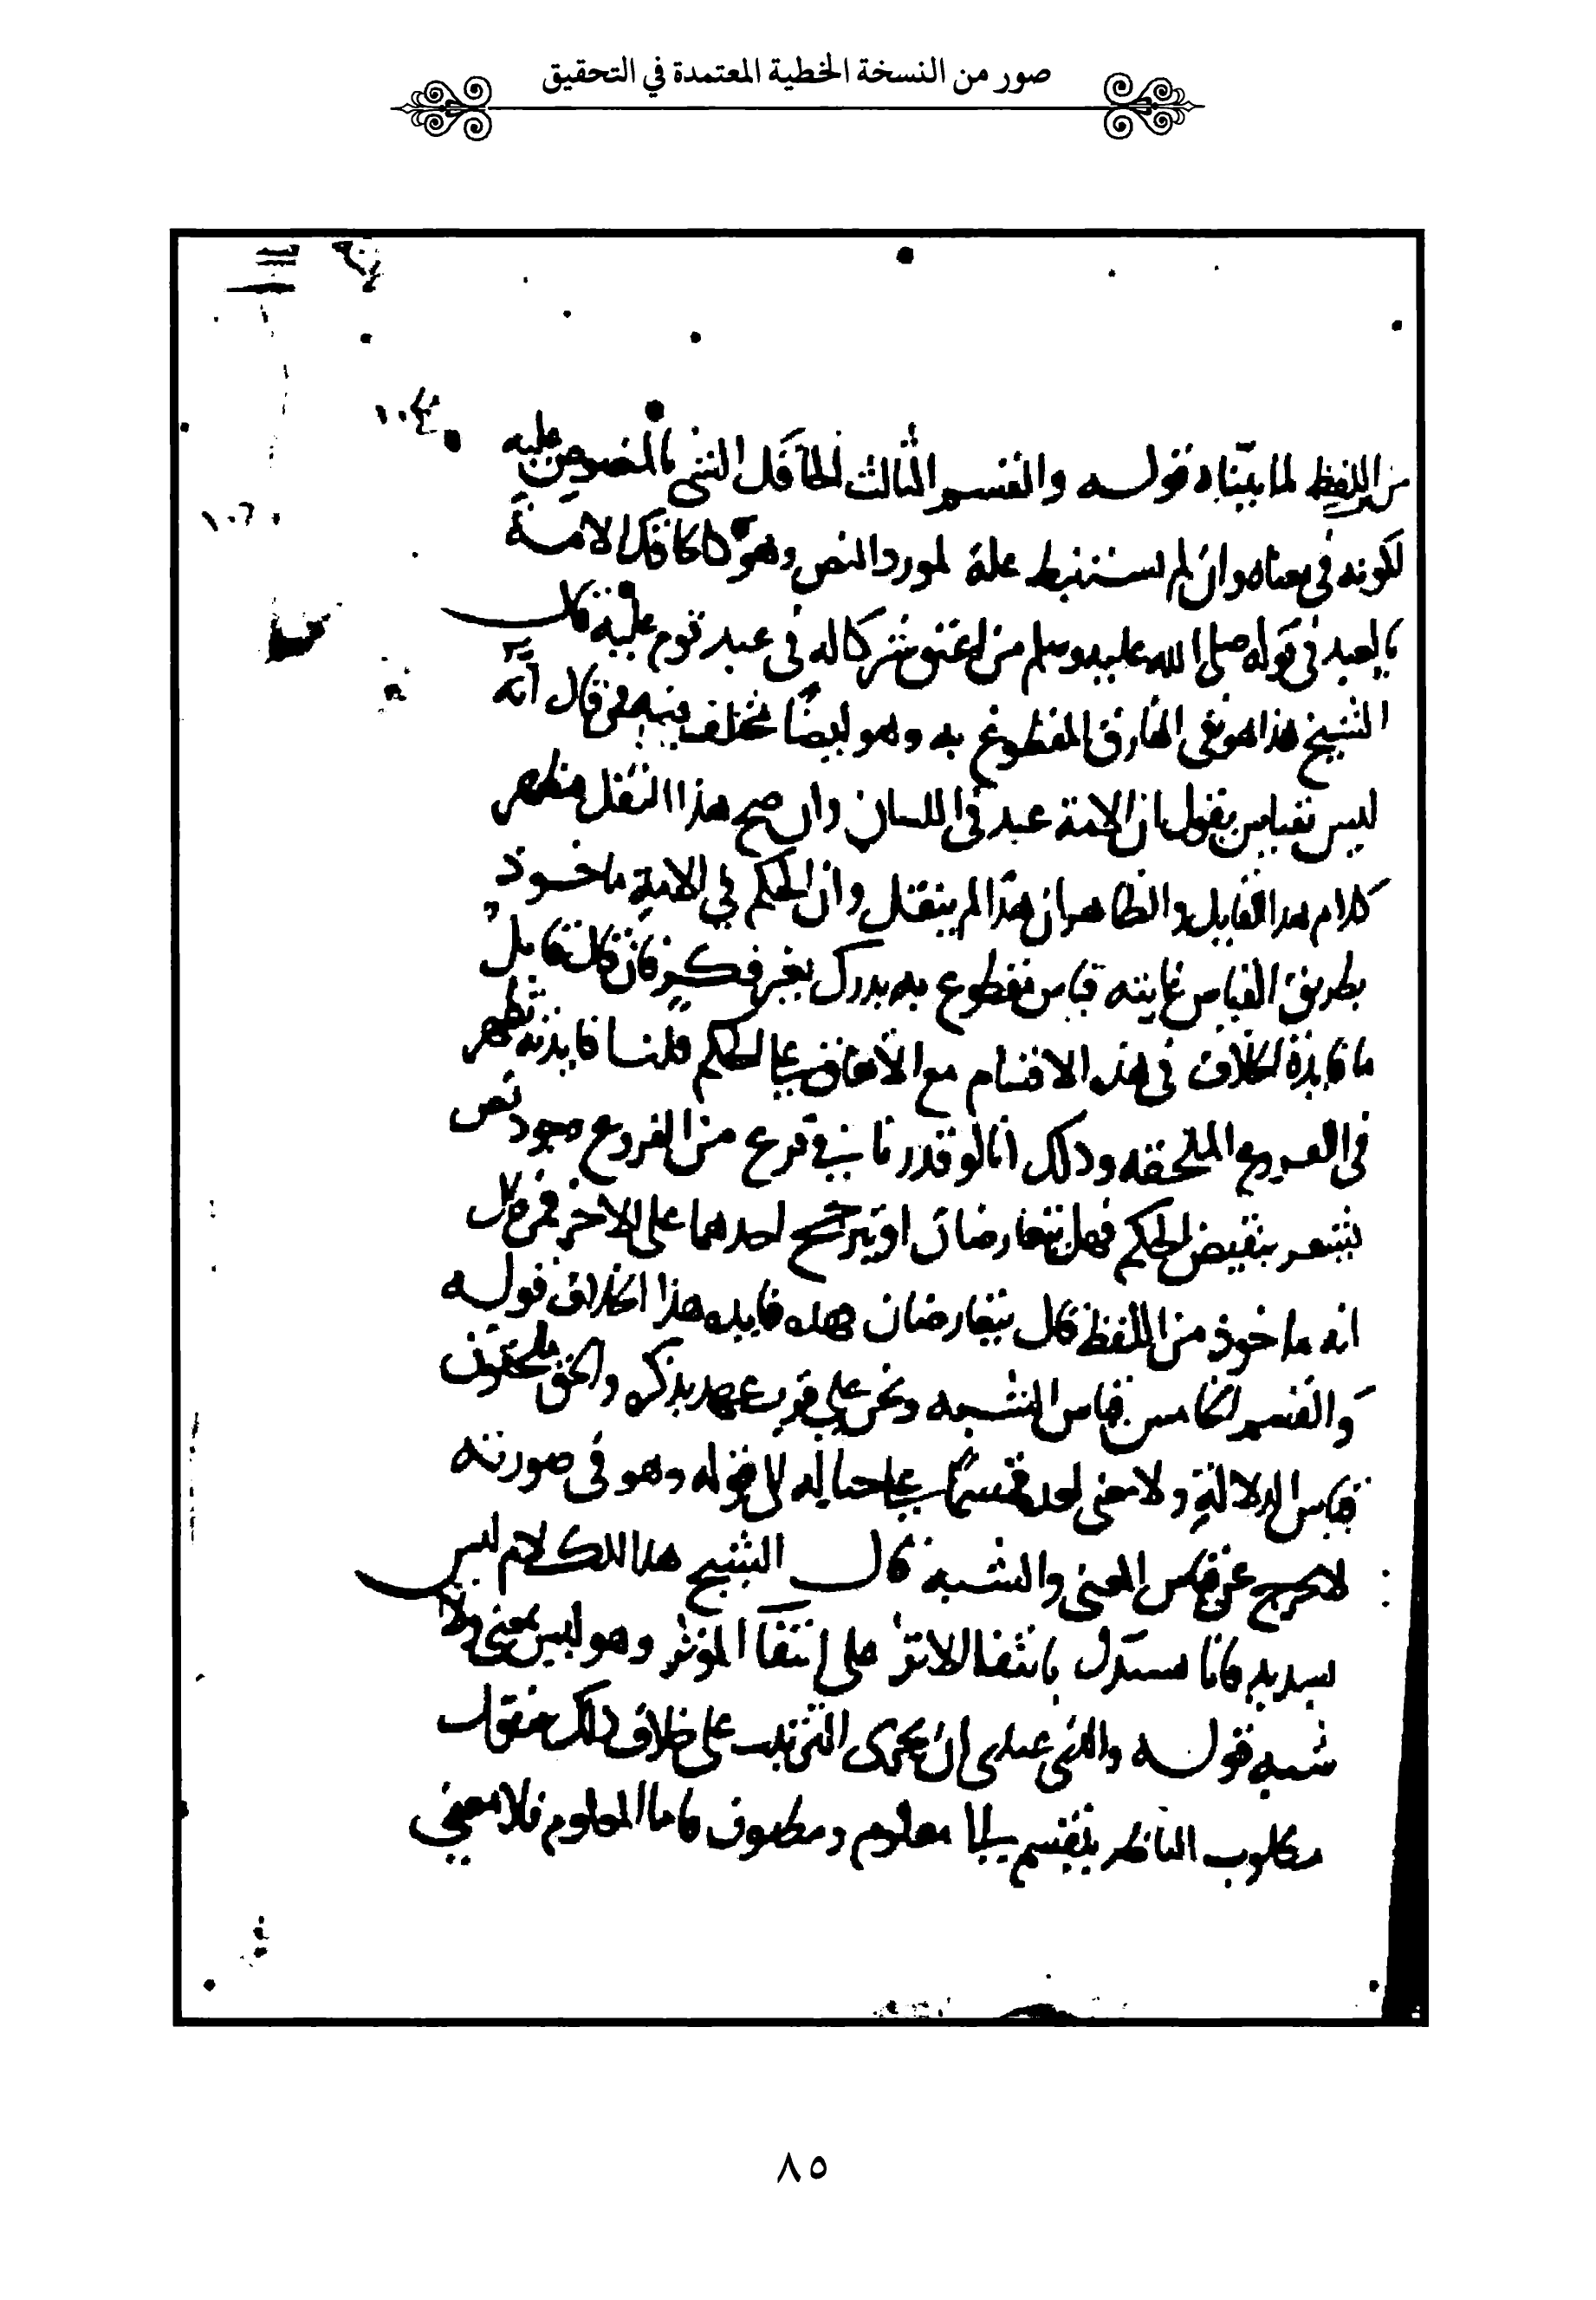 صور من النسخة الخطية المعتمدة في التحقيق
١٠٤
من اللفظ لما بيناه قوله والقسم الثالث الحاقك الشي بالمنصوص عليه
١٠٦
لكونه في معناه وان لم تستنبط علة لمورد النص وهو كالحاقك الامة
بالعبد في قوله صلى الله عليه وسلم من اعتق شركا له في عبد قوم عليه قال
الشيخ هذا هو نفي الفارق المقطوع به وهو ايضا مختلف فيه فمن قال انه
ليس بقياس يقول بان الامة عبد في اللسان وان صح هذا النقل فظهر
كلام هذا القايل والظاهر ان هذا لم ينقل وان الحكم في الامة ماخوذ
بطريق القياس غايته قياس مقطوع به يدرك بغير فكر فان قال قايل
ما فايدة الخلاف في هذه الاقسام مع الاتفاق على الحكم قلنا فايدته تظهر
في الفروع الملحقه وذلك انا لو قدرنا في فرع من الفروع وجود نص
يشعر بنقيض الحكم فهل يتعارضان او يترجح احدهما على الاخر فمن قال
انه ماخوذ من اللفظ قال يتعارضان فهذه فايده هذا الخلاف قوله
والقسم الخامس قياس الشبه ونحن على قرب عهد بذكره والحق ملحقون
قياس الدلالة ولا معنى لعده قسما على حياله الى قوله وهو في صورته
لا يخرج عن قياس المعنى والشبه قال الشيخ هذا الكلام ليس
بسديد فانا نستدل بانتفا الاثر على انتفا المؤثر وهو ليس بمعنى ولا
شبه قوله والذي عندي ان يجرى الترتيب على خلاف ذلك فنقول
مطلوب الناظر ينقسم الى معلوم ومظنون فاما المعلوم فلا معنى
٨٥